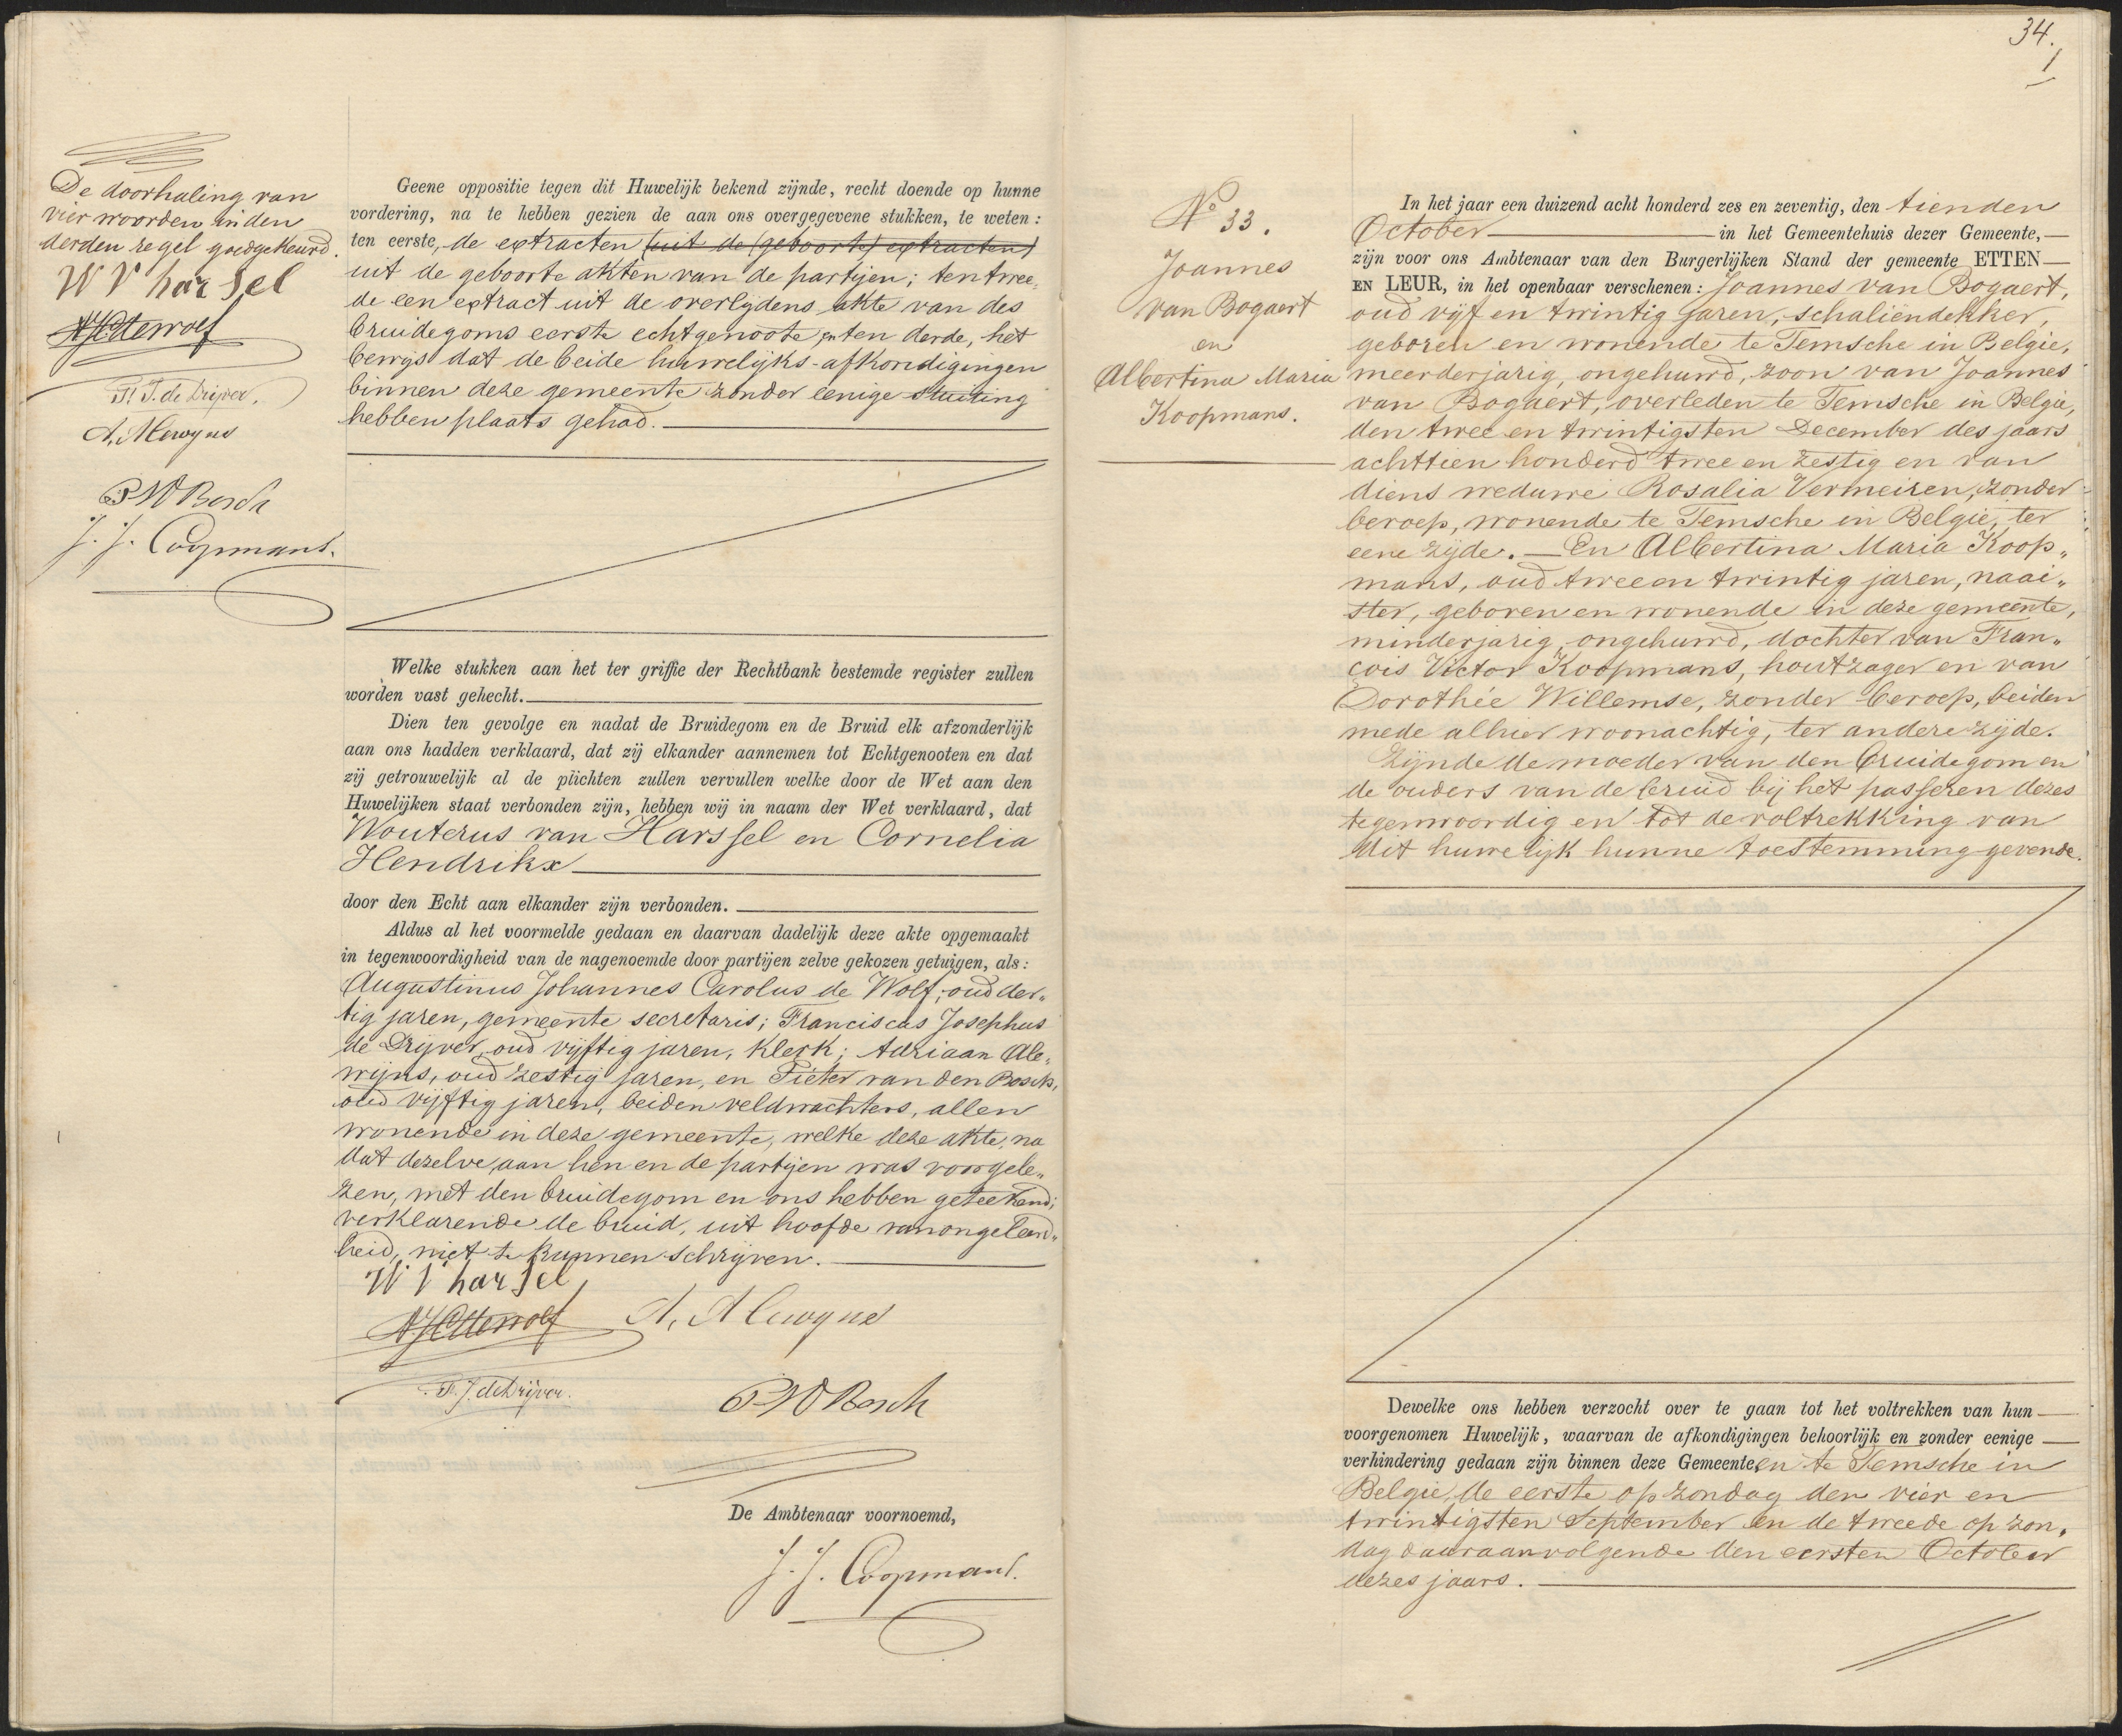 De doorhaling van
vier woorden in den
derden regel goedgekeurd.
W V harssel
AJCdeWolf
F. J. de Drijver.
A, Alewyns
P V D Bosch
J. J. Coopmans.
Geene oppositie tegen dit Huwelijk bekend zijnde, recht doende op hunne
vordering, na te hebben gezien de aan ons overgegevene stukken, te weten:
ten eerste, de extracten (uit de (geboorte) extracten)
uit de geboorte akten van de partijen; ten twee„
de een extract uit de overlijdens akte van des
bruidegoms eerste echtgenoote en ten derde, het
bewijs dat de beide huwelijks-afkondigingen
binnen deze gemeente zonder eenige stuiting
hebben plaats gehad.
Welke stukken aan het ter griffie der Rechtbank bestemde register zullen
worden vast gehecht.
Dien ten gevolge en nadat de Bruidegom en de Bruid elk afzonderlijk
aan ons hadden verklaard, dat zij elkander aannemen tot Echtgenooten en dat
zij getrouwelijk al de plichten zullen vervullen welke door de Wet aan den
Huwelijken staat verbonden zijn, hebben wij in naam der Wet verklaard, dat
Wouterus van Harssel en Cornelia
Hendrikx
door den Echt aan elkander zijn verbonden.
Aldus al het voormelde gedaan en daarvan dadelijk deze akte opgemaakt
in tegenwoordigheid van de nagenoemde door partijen zelve gekozen getuigen, als:
Augustinus Johannes Carolus de Wolf, oud der„
tig jaren, gemeente secretaris; Franciscus Josephus
de Drijver, oud vijftig jaren, klerk; Adriaan Ale„
wijns, oud zestig jaren, en Pieter van den Bosch,
oud vijftig jaren, beiden veldwachters, allen
wonende in deze gemeente, welke deze akte, na
dat dezelve aan hen en de partijen was voorgele„
zen, met den bruidegom en ons hebben geteekend;
verklarende de bruid, uit hoofde van ongeleerd„
heid, niet te kunnen schrijven.
W V harssel
AJCdeWolf A, Alewyns
F. J. de Drijver. P V D Bosch
De Ambtenaar voornoemd,
J. J. Coopmans.
34.
No 33.
Joannes
van Bogaert
en
Albertina Maria
Koopmans.
In het jaar een duizend acht honderd zes en zeventig, den tienden
October in het Gemeentehuis dezer Gemeente,
zijn voor ons Ambtenaar van den Burgerlijken Stand der gemeente ETTEN
EN LEUR, in het openbaar verschenen: Joannes van Bogaert,
oud vijf en twintig jaren, schaliëndekker,
geboren en wonende te Temsche in Belgie,
meerderjarig, ongehuwd, zoon van Joannes
van Bogaert, overleden te Temsche in Belgie,
den twee en twintigsten December des jaars
achttien honderd twee en zestig en van
diens weduwe Rosalia Vermeiren, zonder
beroep, wonende te Temsche in Belgie, ter
eene zijde. — En Albertina Maria Koop„
mans, oud twee en twintig jaren, naai„
ster, geboren en wonende in deze gemeente,
minderjarig, ongehuwd, dochter van Fran„
çois Victor Koopmans, houtzager en van
Dorothée Willemse, zonder beroep, beiden
mede alhier woonachtig, ter andere zijde.
Zijnde de moeder van den bruidegom en
de ouders van de bruid bij het passeren dezes
tegenwoordig en tot de voltrekking van
dit huwelijk hunne toestemming gevende.
Dewelke ons hebben verzocht over te gaan tot het voltrekken van hun
voorgenomen Huwelijk, waarvan de afkondigingen behoorlijk en zonder eenige
verhindering gedaan zijn binnen deze Gemeente, en te Temsche in
Belgie, de eerste op zondag den vier en
twintigsten September en de tweede op zon„
dag daaraanvolgende den eersten October
dezes jaars.